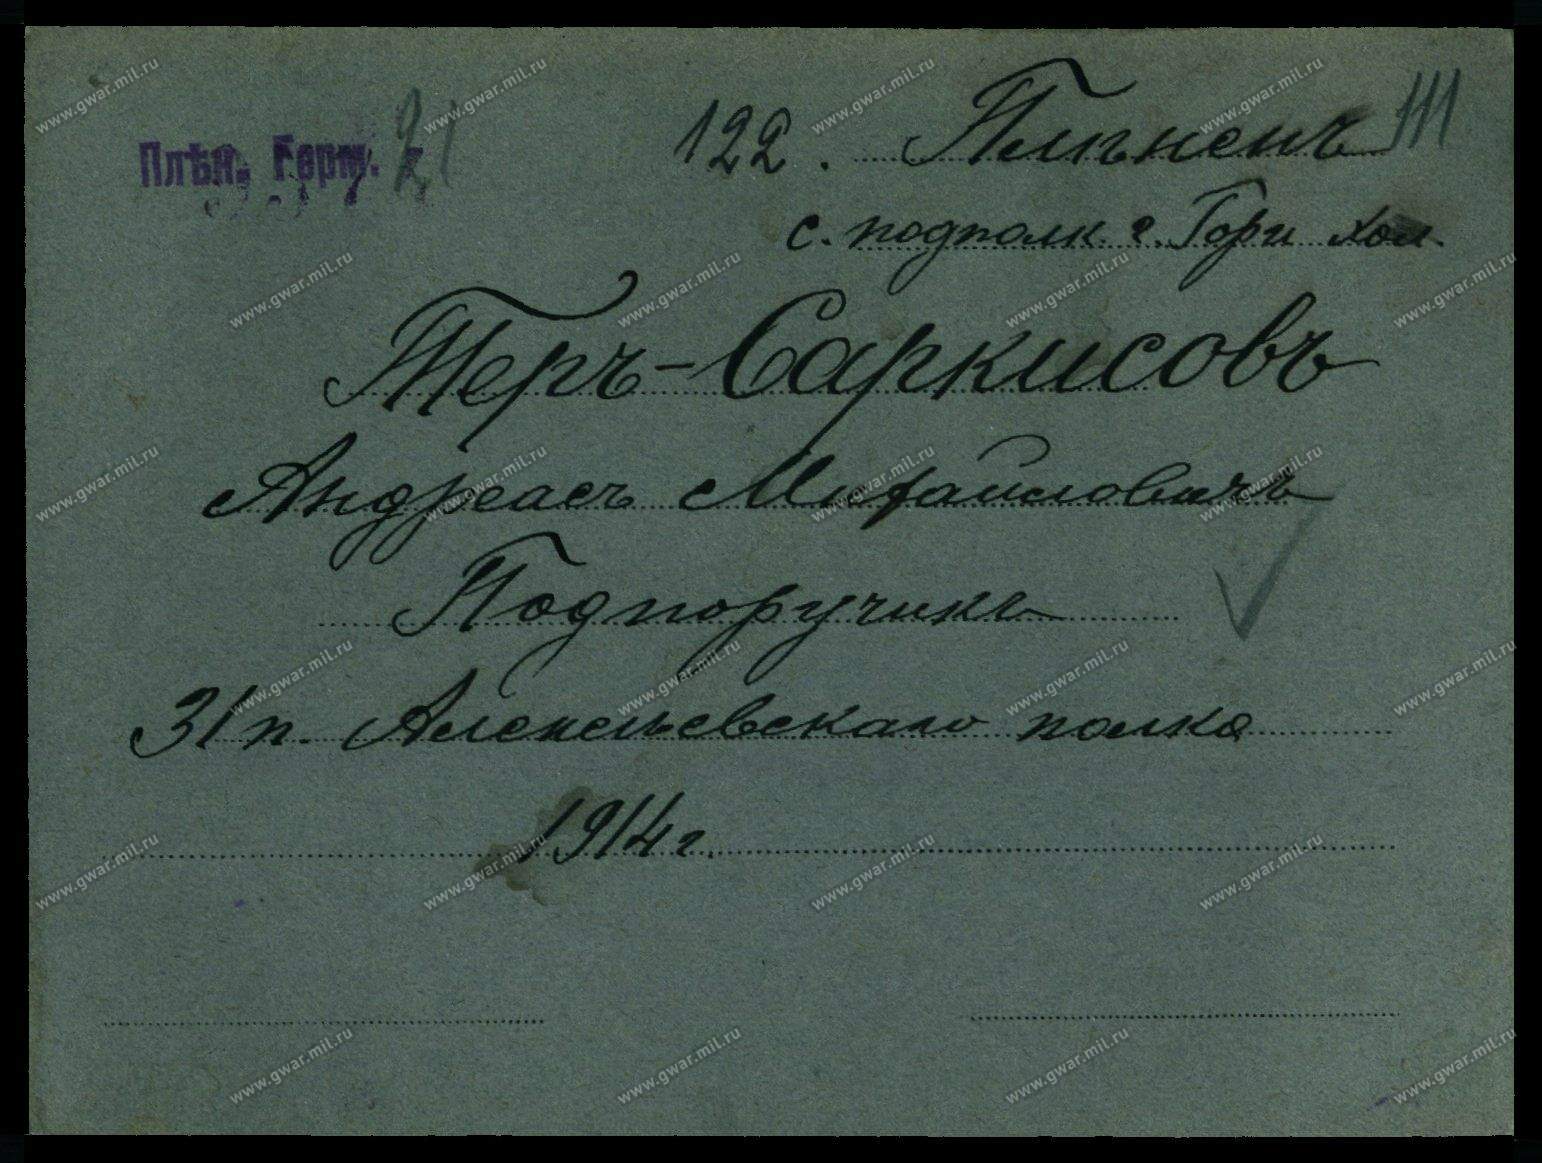 Плѣн. Герм.
122. Плѣненъ 111
с. подполк. г. Гори хол.
Теръ-Саркисовъ
Андреасъ Михайловичъ
Подпоручикъ
31 п. Алексѣевскаго полка
1914 г.
www.gwar.mil.ru